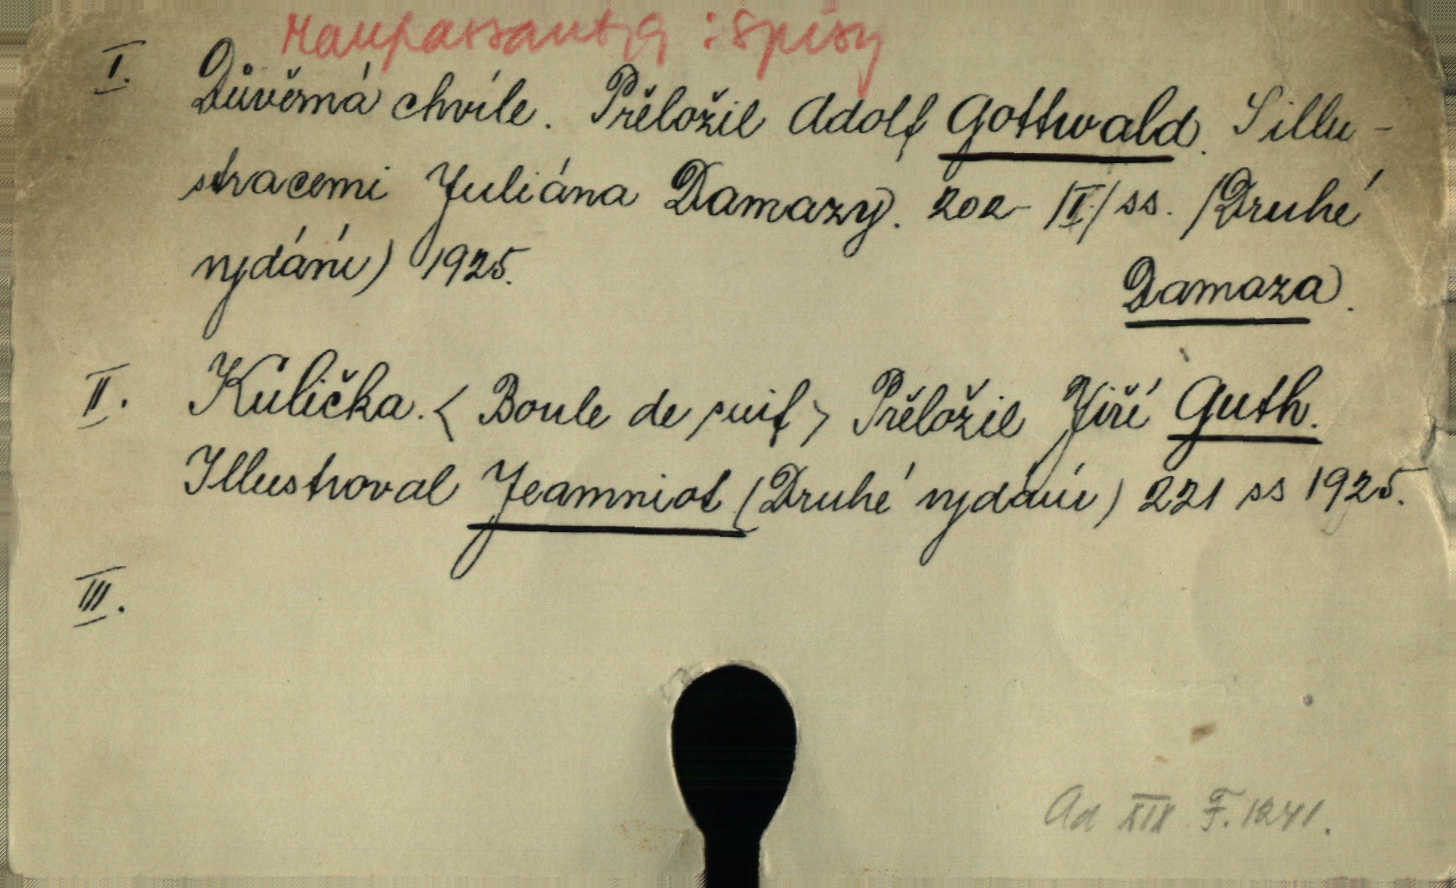 Maupassant, G : Spisy
I. Důvěrná chvíle. Přeložil Adolf Gottwald. S illu-
stracemi Juliána Damazy. 202-/II/ ss. /Druhé
vydání) 1925.
Damaza.
II. Kulička. < Boule de suif > Přeložil Jiří Guth.
Illustroval Jeamniot (Druhé vydání) 221 ss 1925.
III.
Ad XIX F. 1241.